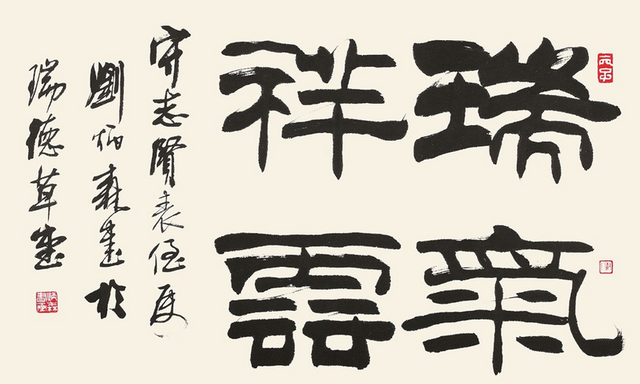 瑞氣
祥雲
志賢表侄
劉炳森書於
瑞德草堂